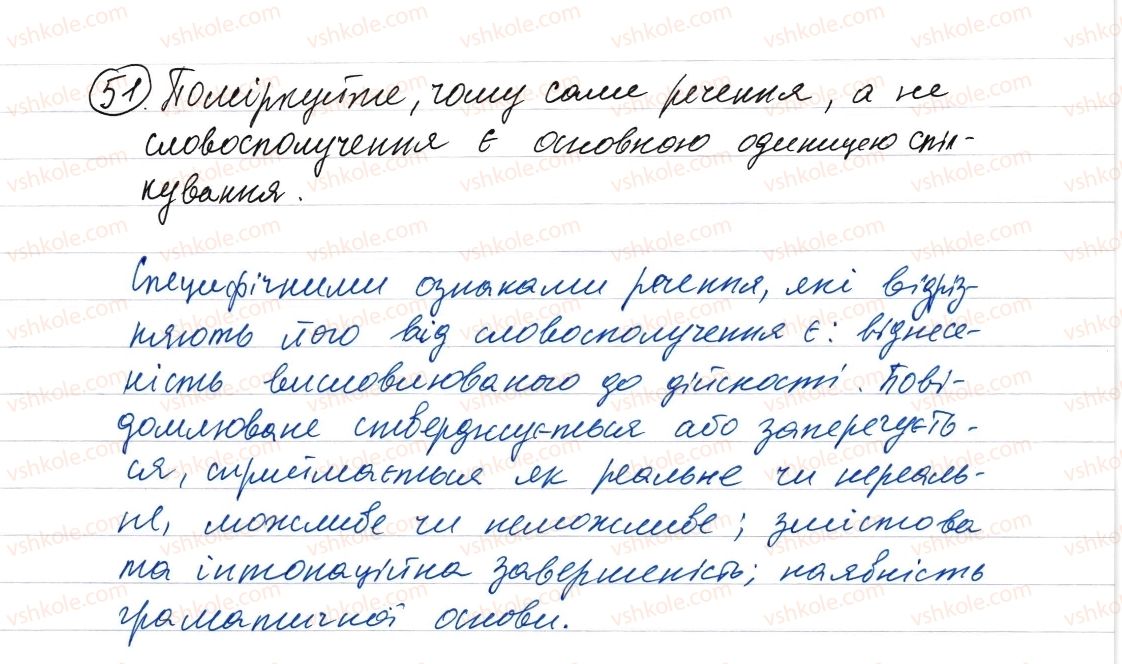 51. Поміркуйте, чому саме речення, а не
словосполучення є основною одиницею спіл-
кування.
Специфічними ознаками речення, які відріз-
няють його від словосполучення є: віднесе-
ність висловлюваного до дійсності. Пові-
домлюване стверджується або заперечуєть-
ся, сприймається як реальне чи нереаль-
не, можливе чи неможливе; змістова
та інтонаційна завершеність; наявність
граматичної основи.